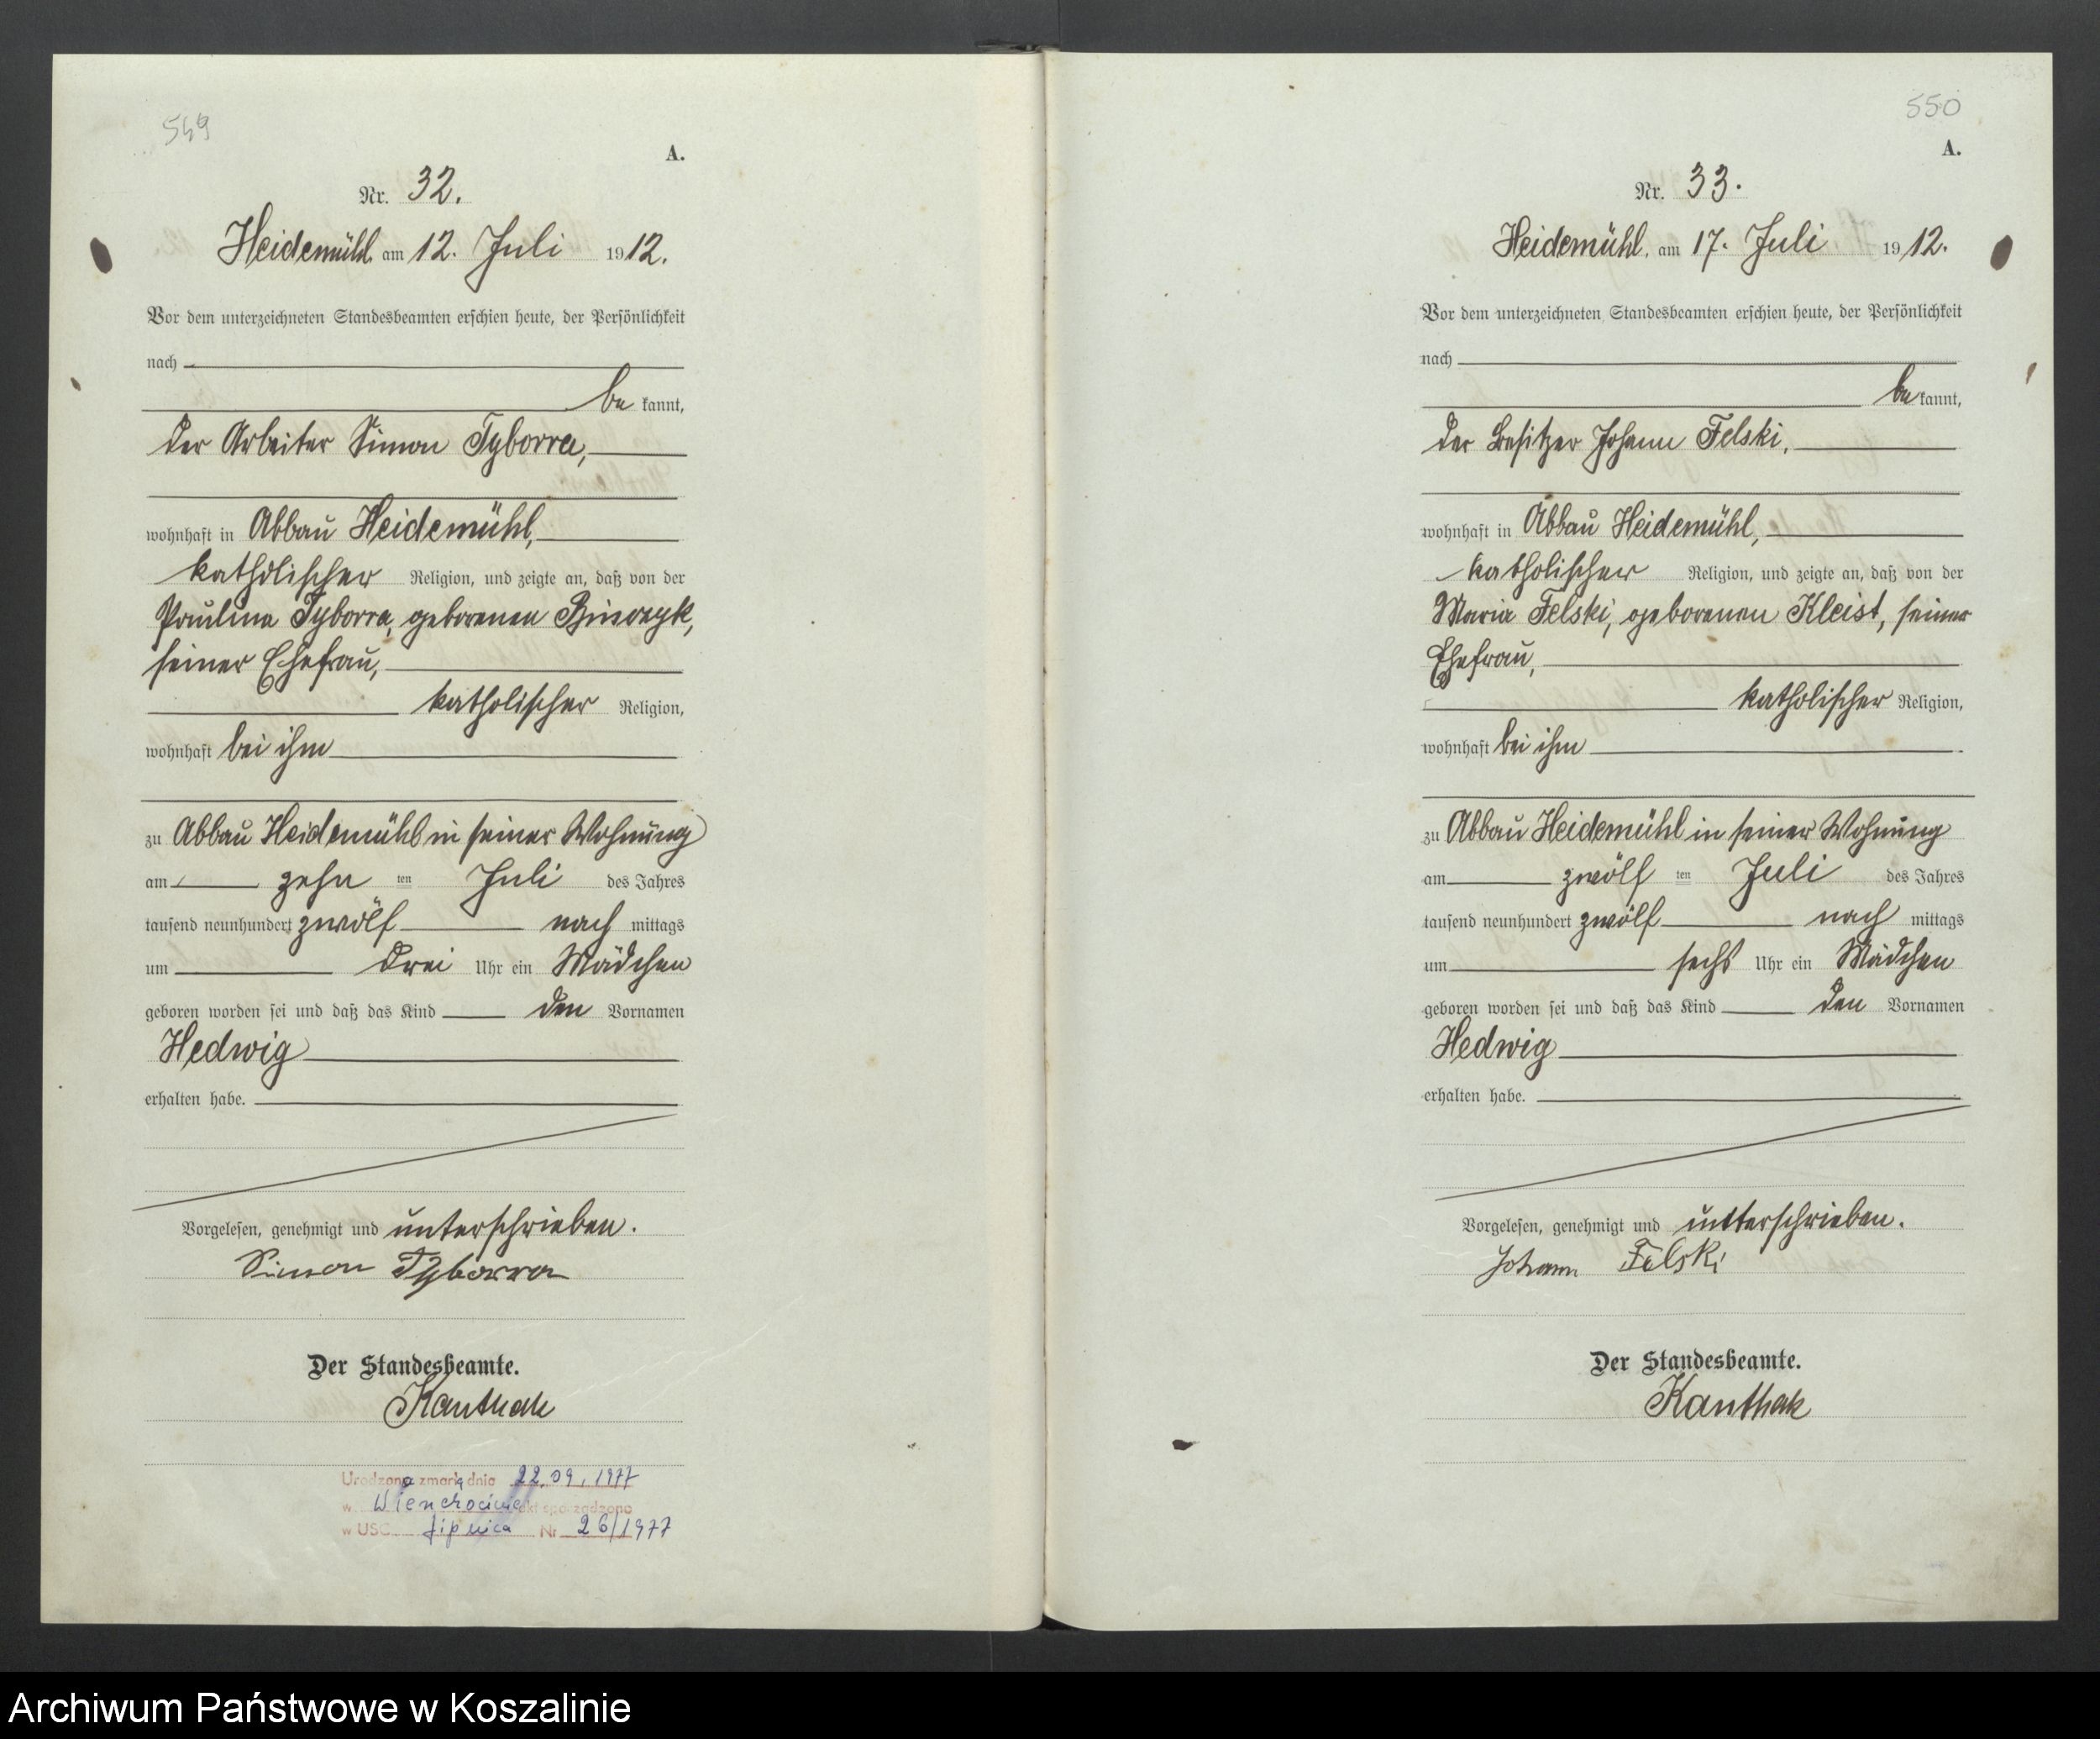 549
A.
Nr. 32.
Heidemühl am 12. Juli 1912.
Vor dem unterzeichneten Standesbeamten erschien heute, der Persönlichkeit
nach
be kannt,
der Arbeiter Simon Tyborra,
wohnhaft in Abbau Heidemühl,
katholischer Religion, und zeigte an, daß von der
Paulina Tyborra, geborenen
seiner Ehefrau,
katholischer Religion,
wohnhaft bei ihm
zu Abbau Heidemühl in seiner Wohnung
am zehn ten Juli des Jahres
tausend neunhundert zwölf nach mittags
um drei Uhr ein Mädchen
geboren worden sei und daß das Kind den Vornamen
Hedwig
erhalten habe.
Vorgelesen, genehmigt und unterschrieben.
Simon Tyborra
Der Standesbeamte.
Kanthak
Urodzona zmarła dnia 22.09.1977
w akt sporządzono
w USC Lipnica Nr 26/1977
550
A.
Nr. 33.
Heidemühl, am 17. Juli 1912.
Vor dem unterzeichneten Standesbeamten erschien heute, der Persönlichkeit
nach
be kannt,
der Besitzer Johann Felski,
wohnhaft in Abbau Heidemühl,
katholischer Religion, und zeigte an, daß von der
Maria Felski, geborenen Kleist, seiner
Ehefrau,
katholischer Religion,
wohnhaft bei ihm
zu Abbau Heidemühl in seiner Wohnung
am zwölf ten Juli des Jahres
tausend neunhundert zwölf nach mittags
um sechs Uhr ein Mädchen
geboren worden sei und daß das Kind den Vornamen
Hedwig
erhalten habe.
Vorgelesen, genehmigt und unterschrieben.
Johann Felski
Der Standesbeamte.
Kanthak
Archiwum Państwowe w Koszalinie